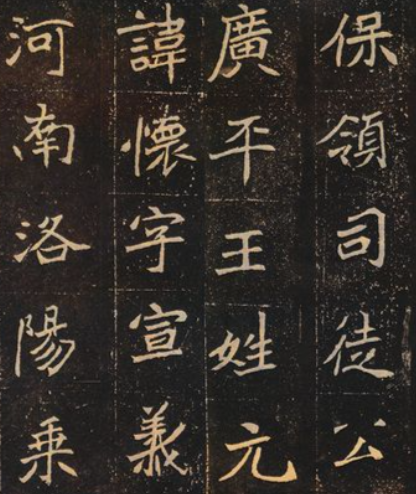 保領司徒公
廣平王姓元
諱懷字宣義
河南洛陽乗